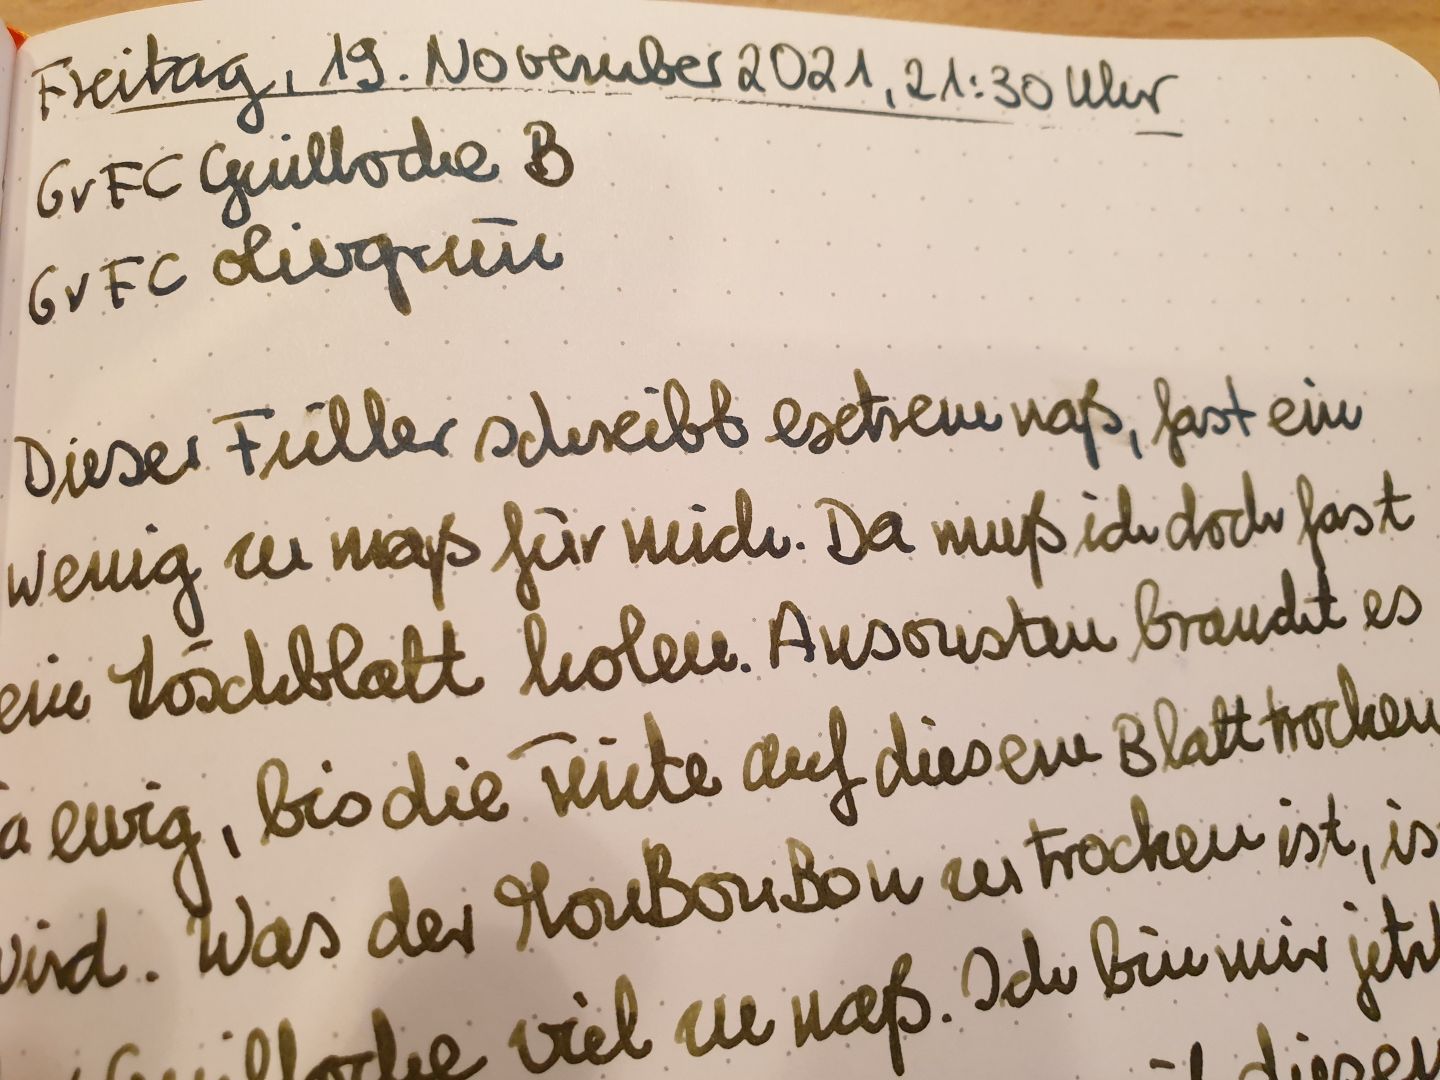 Freitag, 19. November 2021, 21:30 Uhr
GvFC Guilloche B
GvFC Olivgrün
Dieser Füller schreibt extrem naß, fast ein
wenig zu naß für mich. Da muß ich doch fast
ein Löschblatt holen. Ansonsten braucht es
ja ewig, bis die Tinte auf diesem Blatt trocken
wird. Was der MonBonBon zu trocken ist, is
Guilloche viel zu naß. Ich bin mir jetzt
diesem